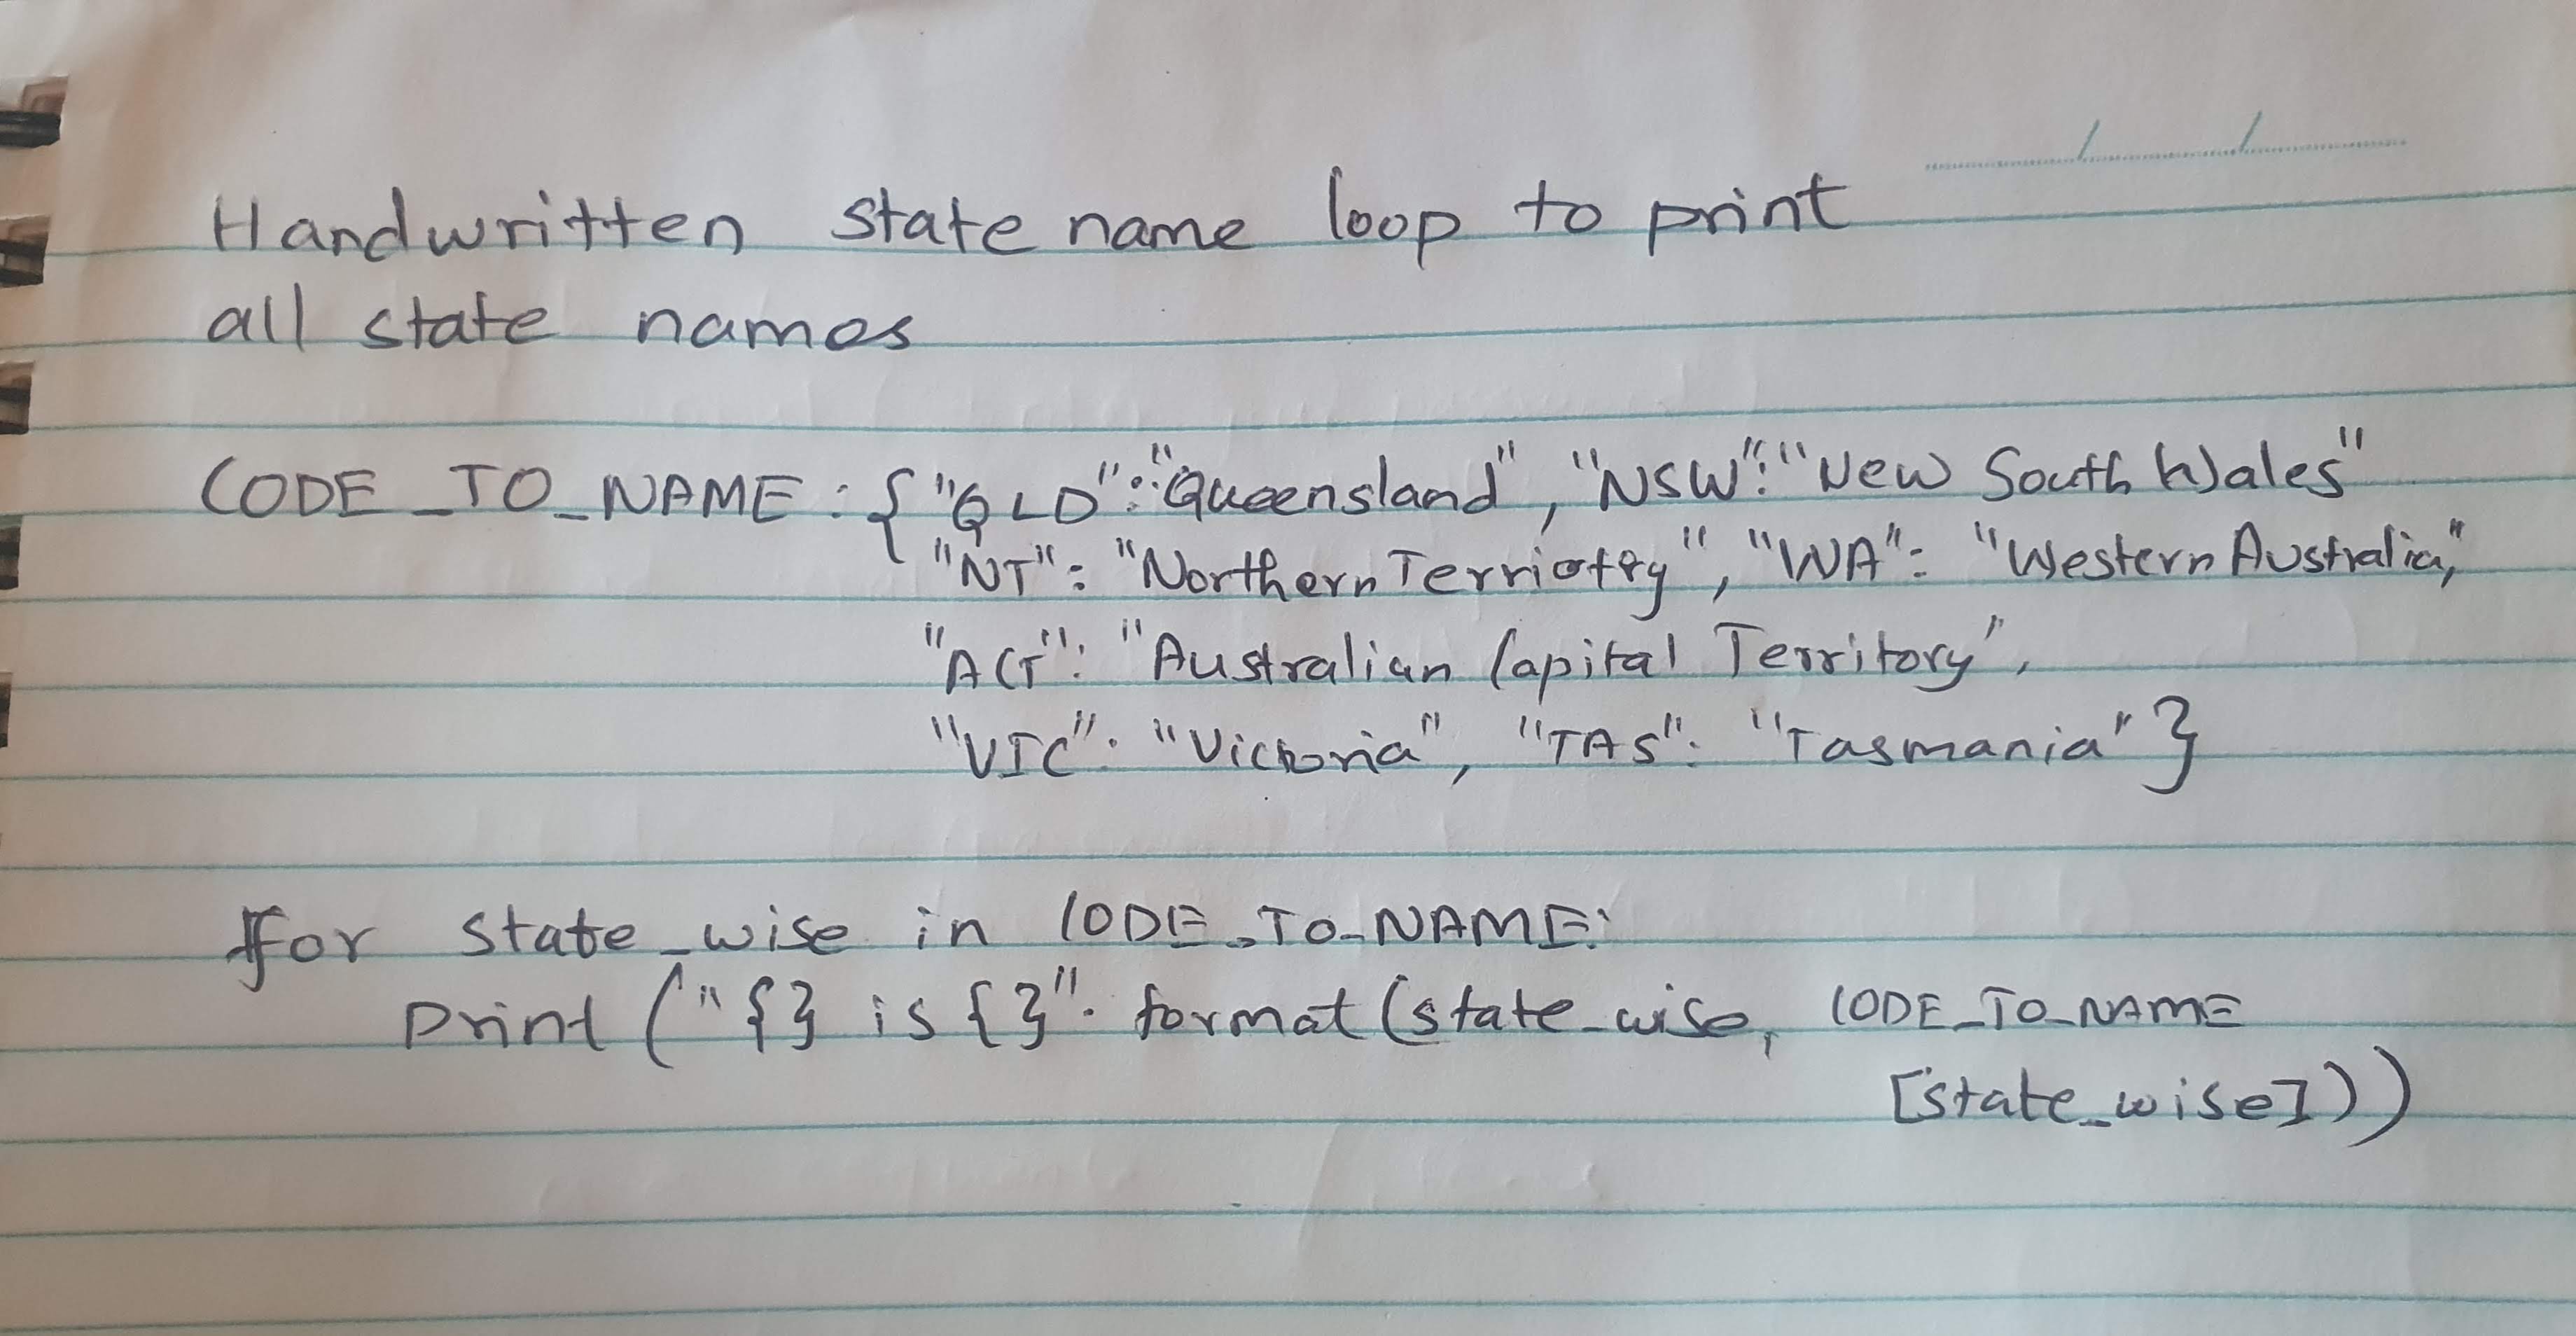 Handwritten state name loop to print
all state names
CODE_TO_NAME : {"QLD":"Queensland", "NSW":"New South Wales"
"NT": "Northern Terriotry", "WA": "Western Australia,"
"ACT": "Australian Capital Territory",
"VIC": "Victoria", "TAS": "Tasmania"}
for state_wise in CODE_TO_NAME:
print ("{} is {}". format (state_wise, CODE_TO_NAME
[state_wise]))